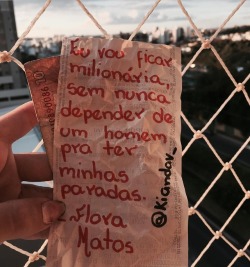 Eu vou ficar
milionária,
sem nunca
depender de
um homem,
pra ter
minhas
paradas.
-Flora
Matos
@Kiandov_